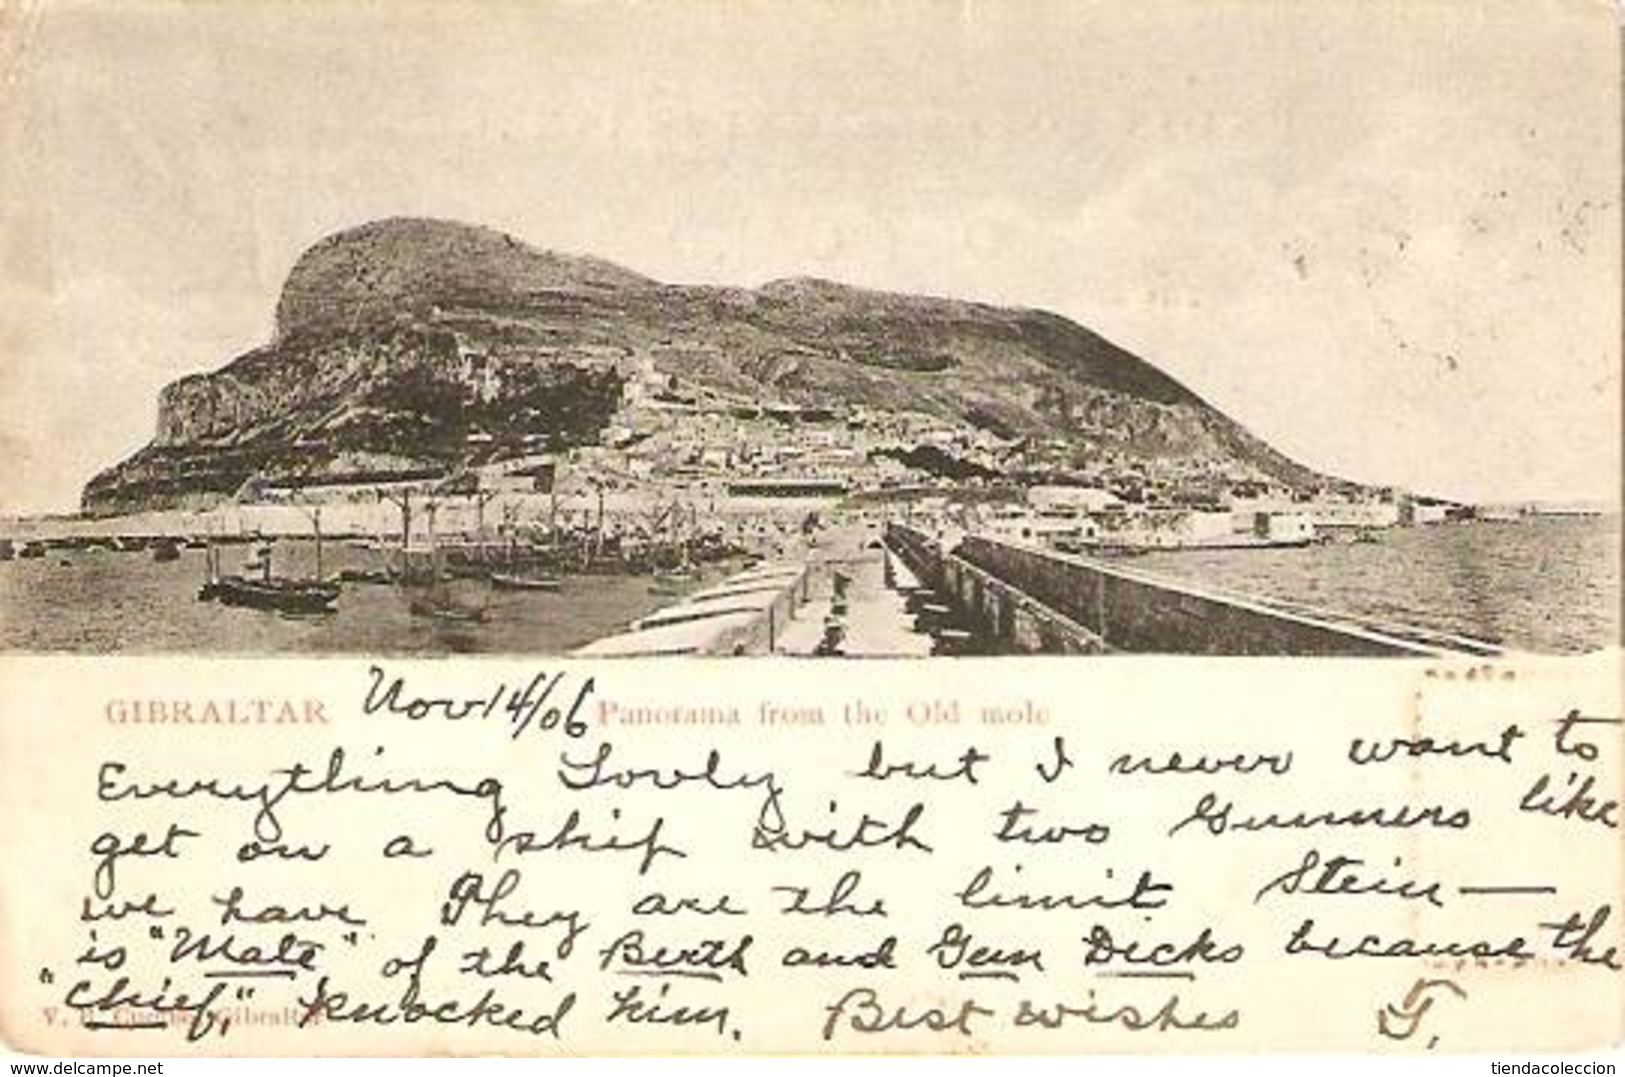 GIBRALTAR Nov 14/06 Panorama from the Old mole
Everything Lovly but I never want to
get on a ship with two Gunners like
we have They are the limit Stein —
is "Mate" of the Berth and Gun Dicks because the
"Chief," knocked him. Best wishes T.
V. B. Cumbo, Gibraltar
delcampe.net
tiendacoleccion